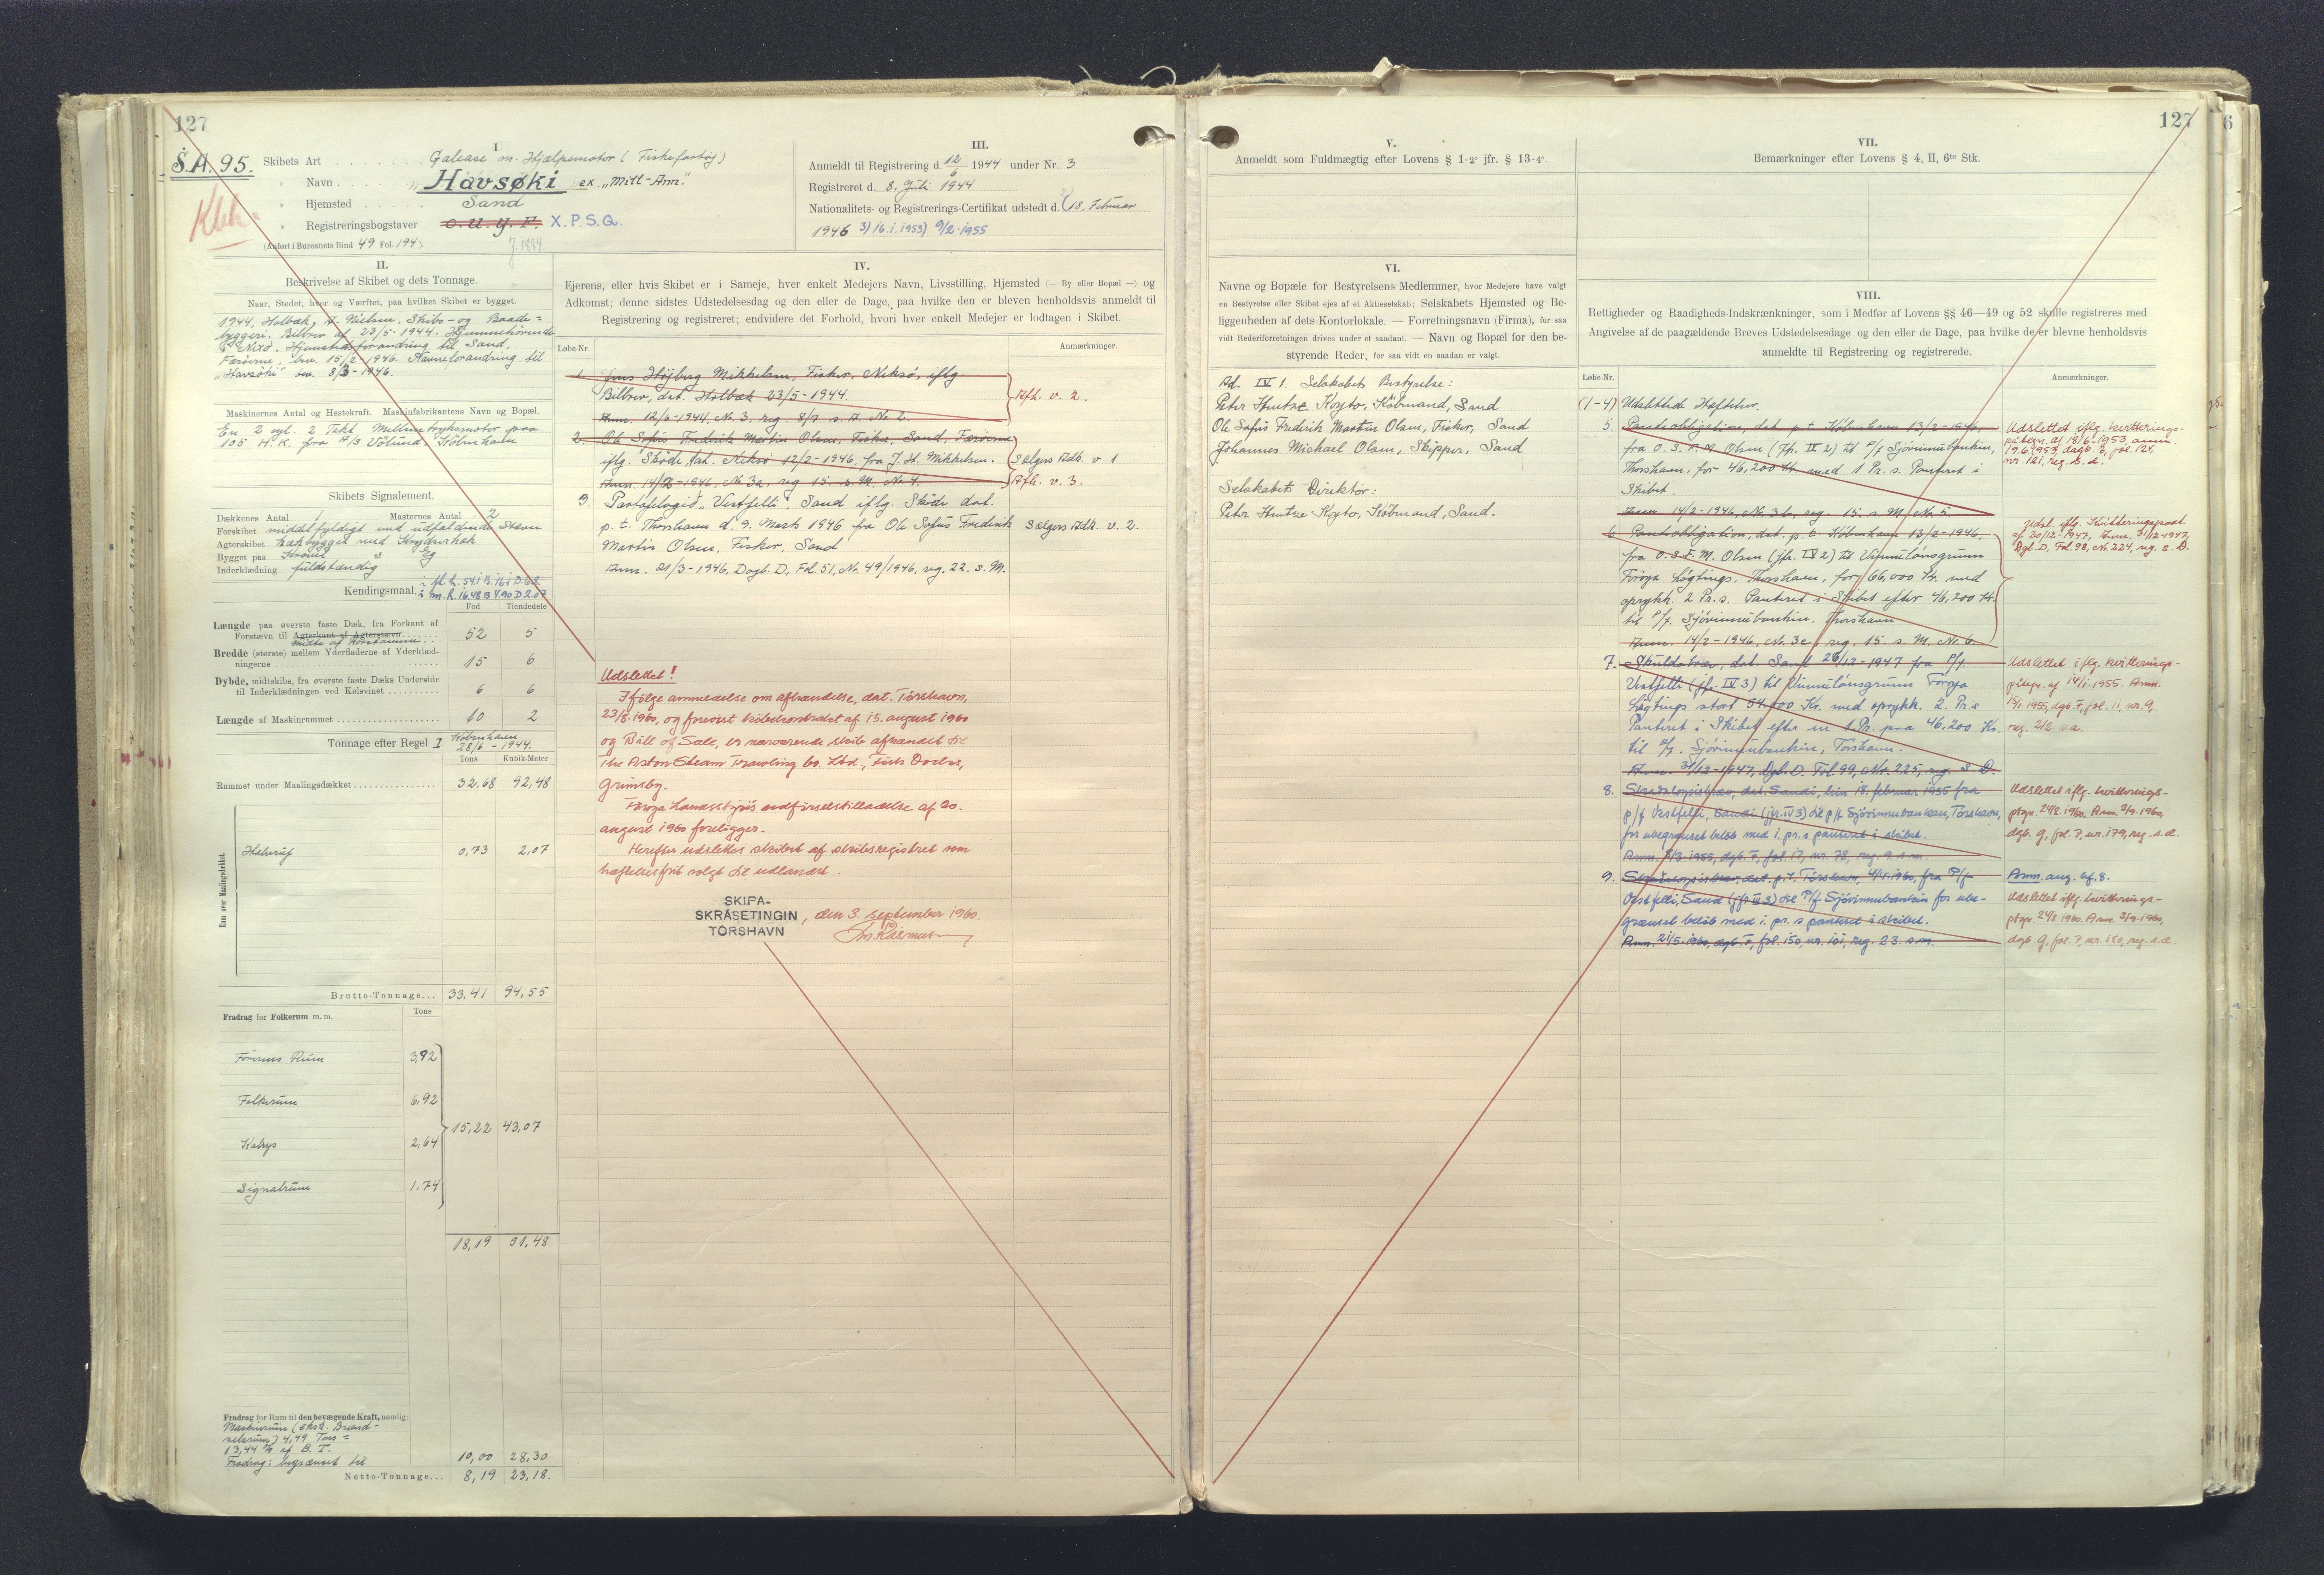 127
S.A. 95.
Kbh.
I
Skibets Art Galease m. Hjælpemotor (Fiskefartøj)
" Navn "Havsøki" ex "Mill-Ann."
" Hjemsted Sand
" Registreringsbogstaver O.U.Y.F. X.P.S.Q.
(Anført i Bureauets Bind 49 Fol. 194).
III.
Anmeldt til Registrering d. 12/6 1944 under Nr. 3
Registreret d. 8. Juli 1944
Nationalitets- og Registrerings-Certifikat udstedt d. 2) 18. Februar
1946 3) 16.1.1953) 9/2-1955
II.
Beskrivelse af Skibet og dets Tonnage.
Naar, Stedet, hvor og Værftet, paa hvilket Skibet er bygget.
1944, Holbæk, Nielsen, Skibs- og Baade=
byggeri. Bilbrev af 23/5-1944. Hjemmehørende
i Nexø. Hjemstedsforandring til Sand,
Færøerne, bev. 15/2-1946. Navneforandring til
"Havsøki" bev. 8/3-1946.
Maskinernes Antal og Hestekraft. Maskinfabrikantens Navn og Bopæl.
En 2 cyl. 2 Takt Mellemtryksmotor paa
105 H.K. fra A/S Vølund, København
Skibets Signalement.
Dækkenes Antal 1 Masternes Antal 2
Forskibet middelfyldigt med udfaldende Stævn
Agterskibet hækbygget med Krydserhæk
Bygget paa Kravel af Eg
Inderklædning fuldstændig
Kendingsmaal.
i m. L. 16.48 B 4.90 D 2.07
Fod Tiendedele
Længde paa øverste faste Dæk, fra Forkant af
Forstævn til Agterkant af Agterstævn 52 5
midte af Rorstammen
Bredde (største) mellem Yderfladerne af Yderklæd-
ningerne 15 6
Dybde, midtskibs, fra øverste faste Dæks Underside
til Inderklædningen ved Kølsvinet 6 6
Længde af Maskinrummet 10 2
Tonnage efter Regel I København
28/6 - 1944.
Tons Kubik-Meter
Rummet under Maalingsdækket 32.68 92,48
Rum over Maalingsdækket.
Halvrup 0,73 2,07
Brutto-Tonnage... 33.41 94,55
Fradrag for Folkerum m.m. Tons
Førerens Rum 3,92
Folkerum 6,92
15,22 43,07
Kabys 2,64
Signalrum 1,74
18,19 51,48
Fradrag for Rum til den bevægende Kraft, nemlig:
Maskinrum (ekskl. Brænd-
selsrum) 4,49 Tons =
13,44 % af B.T.
Fradrag: begrænset til 10,00 28,30
Netto-Tonnage... 8,19 23,18.
IV.
Ejerens, eller hvis Skibet er i Sameje, hver enkelt Medejers Navn, Livsstilling, Hjemsted (— By eller Bopæl —) og
Adkomst; denne sidstes Udstedelsesdag og den eller de Dage, paa hvilke den er bleven henholdsvis anmeldt til
Registrering og registreret; endvidere det Forhold, hvori hver enkelt Medejer er lodtagen i Skibet.
Løbe-Nr. Anmærkninger.
1. Jens Højberg Mikkelsen, Fisker, Neksø, iflg.
Bilbrev, dat. Holbæk 23/5-1944. Afh. v. 2.
Anm. 12/6-1944, No. 3. reg. 8/7 s. A. No 2.
2. Ole Sofus Fredrik Martin Olsen, Fisker, Sand, Færøerne
iflg. Skøde, dat. Neksø 12/2-1946, fra J. H. Mikkelsen. Sælgers Adk. v 1
Anm. 14/2-1946, No 3a, reg 15. s. M. No 4. Afh. v. 3.
3. Partafelagið "Vestfelli", Sand iflg. Skøde dat.
p. t. Thorshavn d. 9. Marts 1946 fra Ole Sofus Fredrik Sælgers Adk. v. 2.
Martin Olsen, Fisker, Sand
Anm. 21/3-1946, Dagb. D, Fol. 51, No. 49/1946, reg. 22. s. M.
Udslettet!
Ifølge anmeldelse om afhændelse, dat. Tórshavn,
23/8.1960, og forevist købekontrakt af 15. august 1960
og Bill of Sale, er nærværende skib afhændet til
The Aston Steam Trawling Co. Ltd., Fish Docks,
Grimsby.
Føroya Landsstýris udførselstilladelse af 20.
august 1960 foreligger.
Herefter udslettes skibet af skibsregistret som
hæftelsesfrit solgt til udlandet.
SKIPA-
SKRÁSETINGIN, den 3. september 1960.
TÓRSHAVN
127
V.
Anmeldt som Fuldmægtig efter Lovens § 1-2° jfr. § 13-4°.
VI.
Navne og Bopæle for Bestyrelsens Medlemmer, hvor Medejere have valgt
en Bestyrelse eller Skibet ejes af et Aktieselskab; Selskabets Hjemsted og Be-
liggenheden af dets Kontorlokale. — Forretningsnavn (Firma), for saa
vidt Rederiforretningen drives under et saadant. — Navn og Bopæl for den be-
styrende Reder, for saa vidt en saadan er valgt.
Ad. IV 1. Selskabets Bestyrelse:
Peter Hentze Koyto, Købmand, Sand
Ole Sofus Fredrik Martin Olsen, Fisker, Sand
Johannes Michael Olsen, Skipper, Sand
Selskabets Direktør:
Peter Hentze Koyto, Købmand, Sand.
VII.
Bemærkninger efter Lovens § 4, II, 6te Stk.
VIII.
Rettigheder og Raadigheds-Indskrænkninger, som i Medfør af Lovens §§ 46—49 og 52 skulle registreres med
Angivelse af de paagældende Breves Udstedelsesdage og den eller de Dage, paa hvilke de er blevne henholdsvis
anmeldte til Registrering og registrerede.
Løbe-Nr. Anmærkninger.
(1-4) Udslettede Hæftelser.
5. Pantobligation, dat. p. t. København 13/2-1946,
fra O. S. F. M Olsen (Jfr. IV 2) til P/f Sjóvinnubankin,
Thorshavn, for 46,200 Kr. med 1 Pr. s. Panteret i
Skibet.
Anm. 14/2-1946, No. 3b, reg. 15. s. M, No. 5.
Udslettet iflg. kvitterings-
påtegn. af 18/6-1953, anm.
19.6.1953, dagb. E, fol. 124,
nr. 121, reg. s. d.
6. Pantobligation, dat. p. t. København 13/2-1946,
fra O. S. F. M. Olsen (jfr. IV 2) til Vinnulánsgrunn
Føroya Løgtings, Thorshavn, for 66,000 Kr. med
oprykk. 2 Pr. s. Panteret i Skibet efter 46,200 Kr.
til P/f. Sjóvinnubankin, Thorshavn
Anm. 14/2-1946, No. 3c, reg. 15. s. M. No 6.
Udsl. iflg. Kvitteringspaat.
af 30/12-1947, Anm. 31/12-1947,
Dgb. D, Fol. 98, No. 224, reg. s. D.
7. Skuldabræv, dat. Sand 26/12-1947 fra P/f.
Vestfelli (jfr. IV 3) til Vinnulánsgrunn Føroya
Løgtings stort 54.000 Kr. med oprykk. 2. Pr. s
Panteret i Skibet efter en 1 Pr. paa 46,200 Kr.
til P/f. Sjóvinnubankin, Tórshavn.
Anm. 31/12-1947, Dgb. D. Fol. 99, No. 225, reg. s D.
Udslettet iflg. kvitterings-
påtegn. af 14/1-1955. Anm.
15/1-1955, dgb. F, fol. 11, nr. 9,
reg. 21/2 s.a.
8. Skadesløysisbræv, dat. Sandi, hin 18. februar 1955 fra
p/f Vestfelli, Sandi (jfr. IV 3) til p/f Sjóvinnubankan, Tórshavn,
for ubegrænset beløb med 1. pr. s panteret i skibet.
Anm. 8/3 1955, dgb. F, fol. 17, nr. 78, reg. 9. s.m.
Udslettet iflg. kvitterings-
ptgn. 24/8.1960. Anm. 3/9.1960,
dgb. G, fol. 7, nr. 179, reg. s.d.
9. Skadesloysisbræv, dat. p. t. Tórshavn, 4/5.1960, fra P/f
Vestfelli, Sand (jfr. IV 3) til P/f Sjóvinnubankin for ube-
grænset beløb med 1. pr. s panteret i skibet.
Anm. 21/5.1960, dgb. F, fol. 150, nr. 101, reg. 23. s.m.
Anm. ang. hf. 8.
Udslettet iflg. kvitterings-
ptgn. 24/8 1960. Anm. 3/9.1960,
dgb. G, fol. 7, nr. 180, reg. s.d.